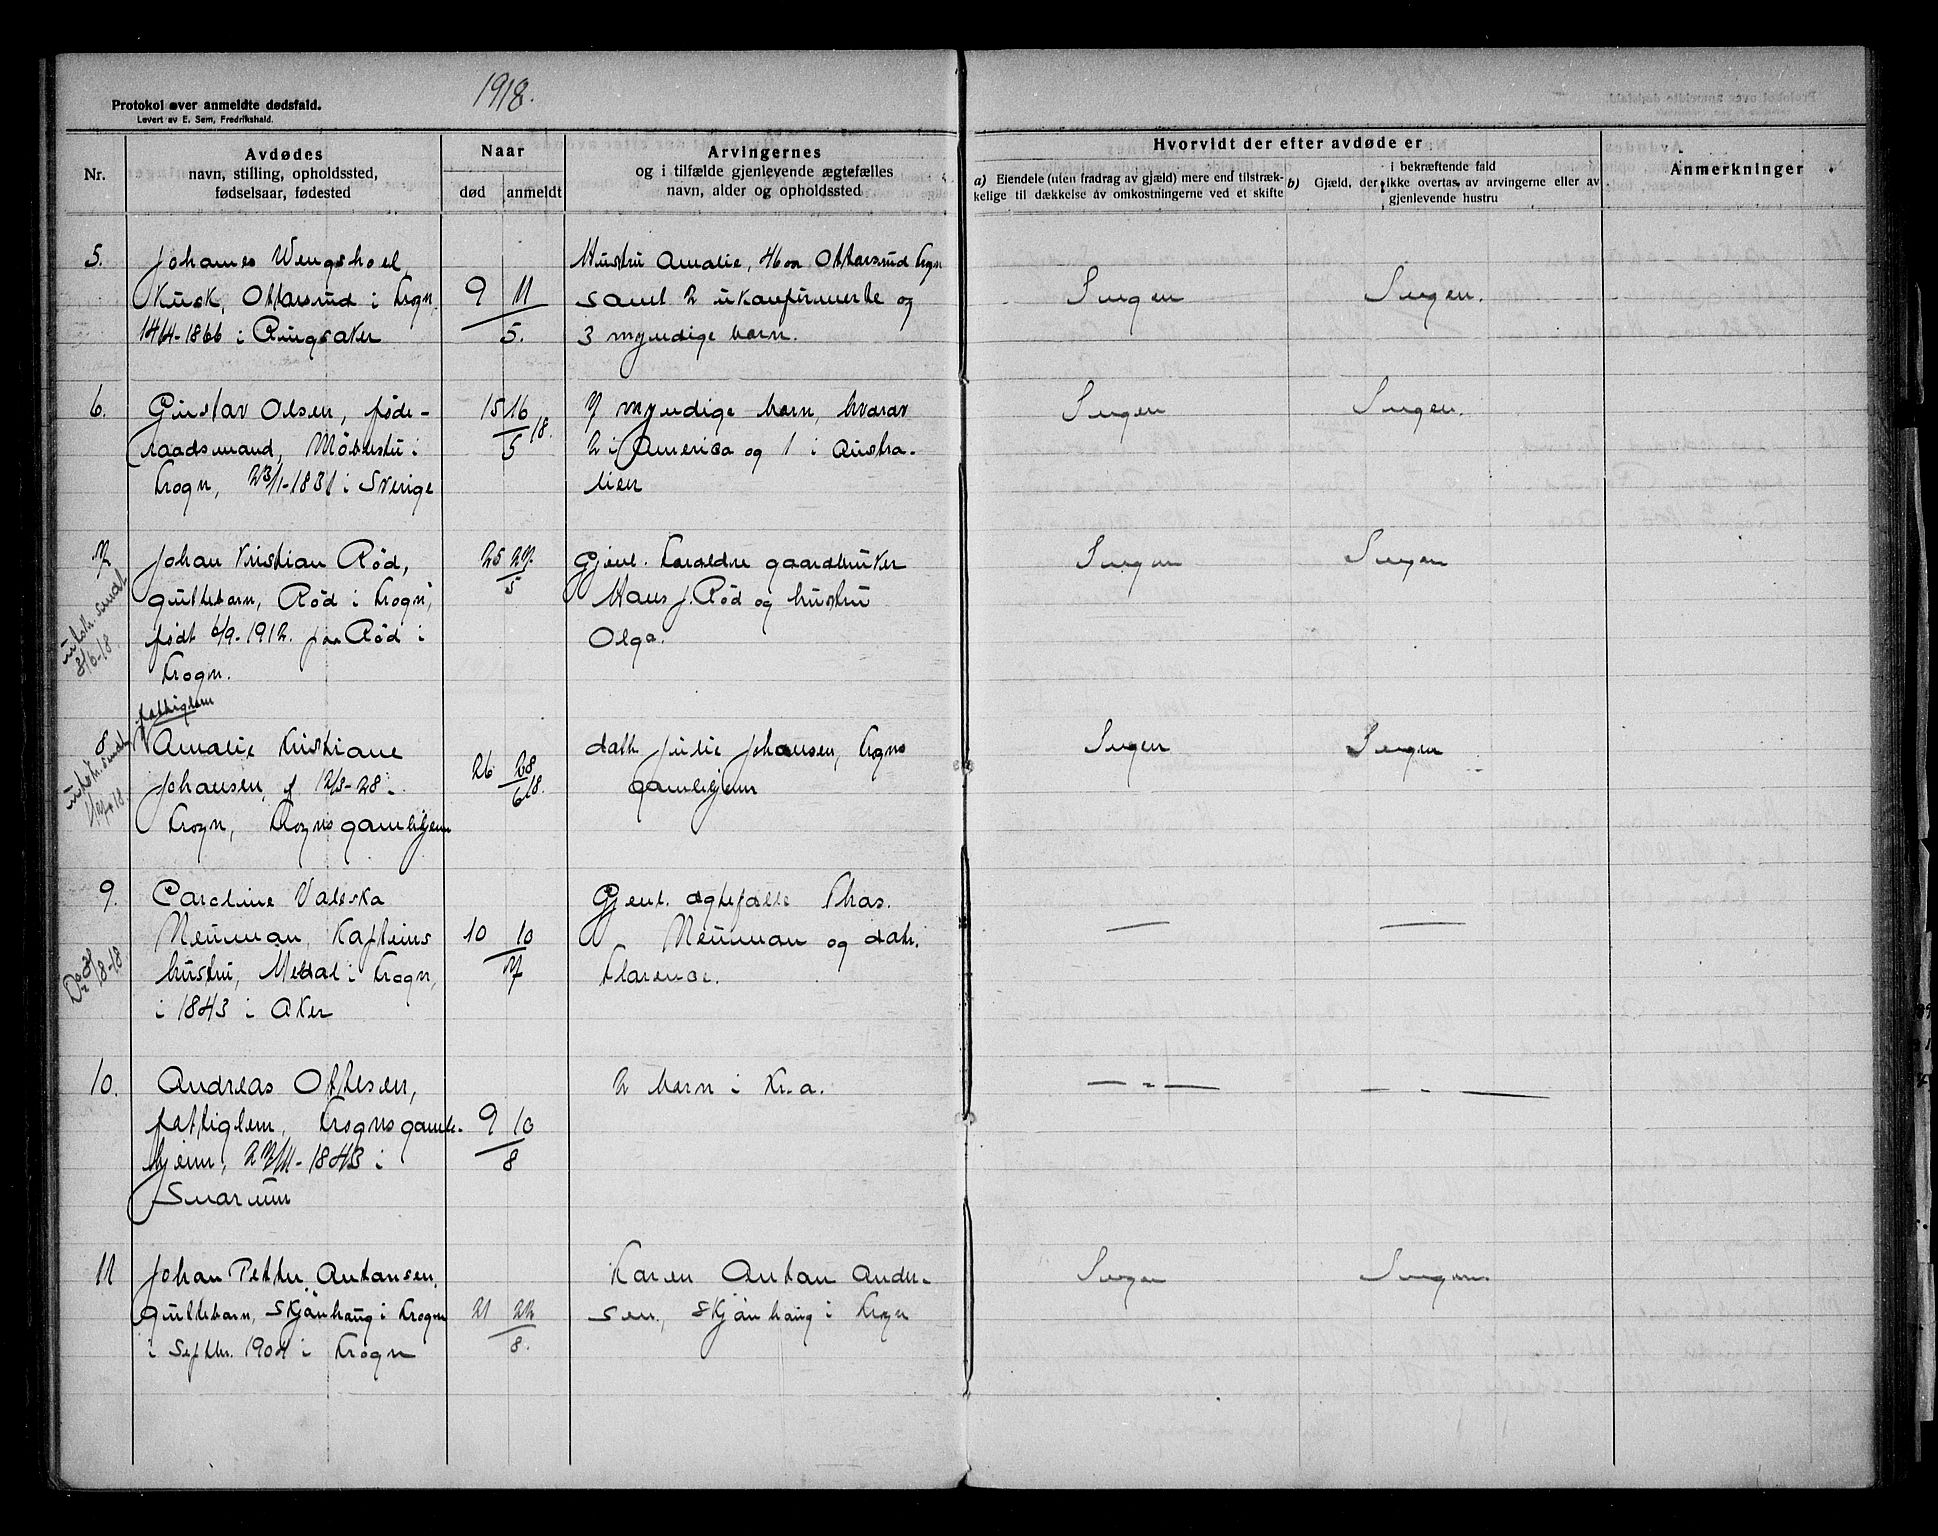 1918.
Protokol over anmeldte dødsfald.
Levert av E. Sem, Fredrikshald.
Nr.
Avdødes
navn, stilling, opholdssted,
fødselsaar, fødested
Naar
død
anmeldt
Arvingernes
og i tilfælde gjenlevende ægtefælles
navn, alder og opholdssted
Hvorvidt der efter avdøde er
a) Eiendele (uten fradrag av gjæld) mere end tilstræk-
kelige til dækkelse av omkostningerne ved et skifte
b) i bekræftende fald
Gjæld, der ikke overtas av arvingerne eller av
gjenlevende hustru
Anmerkninger
5.
Johannes Wengshoel,
Kusk, Ottarsrud i Frogn,
14/4-1866 i Ringsaker
9 11
5.
Hustru Amalie, 46 aar Ottarsrud Frogn
samt 2 ukonfirmerte og
3 myndige barn.
Ingen
Ingen.
6.
Gustav Olsen, føde-
raadsmand, i
Frogn, 23/1-1831 i Sverige
15 16
5 18.
7 myndige barn, hvorav
2 i America og 1 i Austra-
lien
Ingen
Ingen.
7
utskr. sendt
3/6-18.
Johan Kristian Rød,
guttebarn, Rød i Frogn,
født 6/9-1912. paa Rød i
Frogn.
25 27.
5
Gjenl. foreldre gaardbruker
Hans J. Rød og hustru
Olga.
Ingen
Ingen
8
utskr. sendt
fattiglem
Amalie Kristiane
Johansen, f 12/3-28 i
Frogn, Frogns gamlehjem
26 28
6 18.
datt. Julie Johansen, Frogns
gamlehjem
Ingen
Ingen
9.
Caroline Valeska
Neuman, Kapteins
hustru, i Frogn,
i 1843 i Aker
10 10
7
Gjenl. ægtefælle Thos.
Neuman og datr.
Florence.
—
—
10.
Andreas Ottesen,
fattiglem, Frogns gamle-
hjem, 27/11-1843 i
Snarum
9 10
8
2 barn i Kr.a.
— " —
— " —
11
Johan Petter Antonsen,
guttebarn, Skjønhaug i Frogn
i Septbr. 1904 i Frogn
21 22
8.
Karen Anton Ander-
sen, Skjønhaug i Frogn
Ingen
Ingen